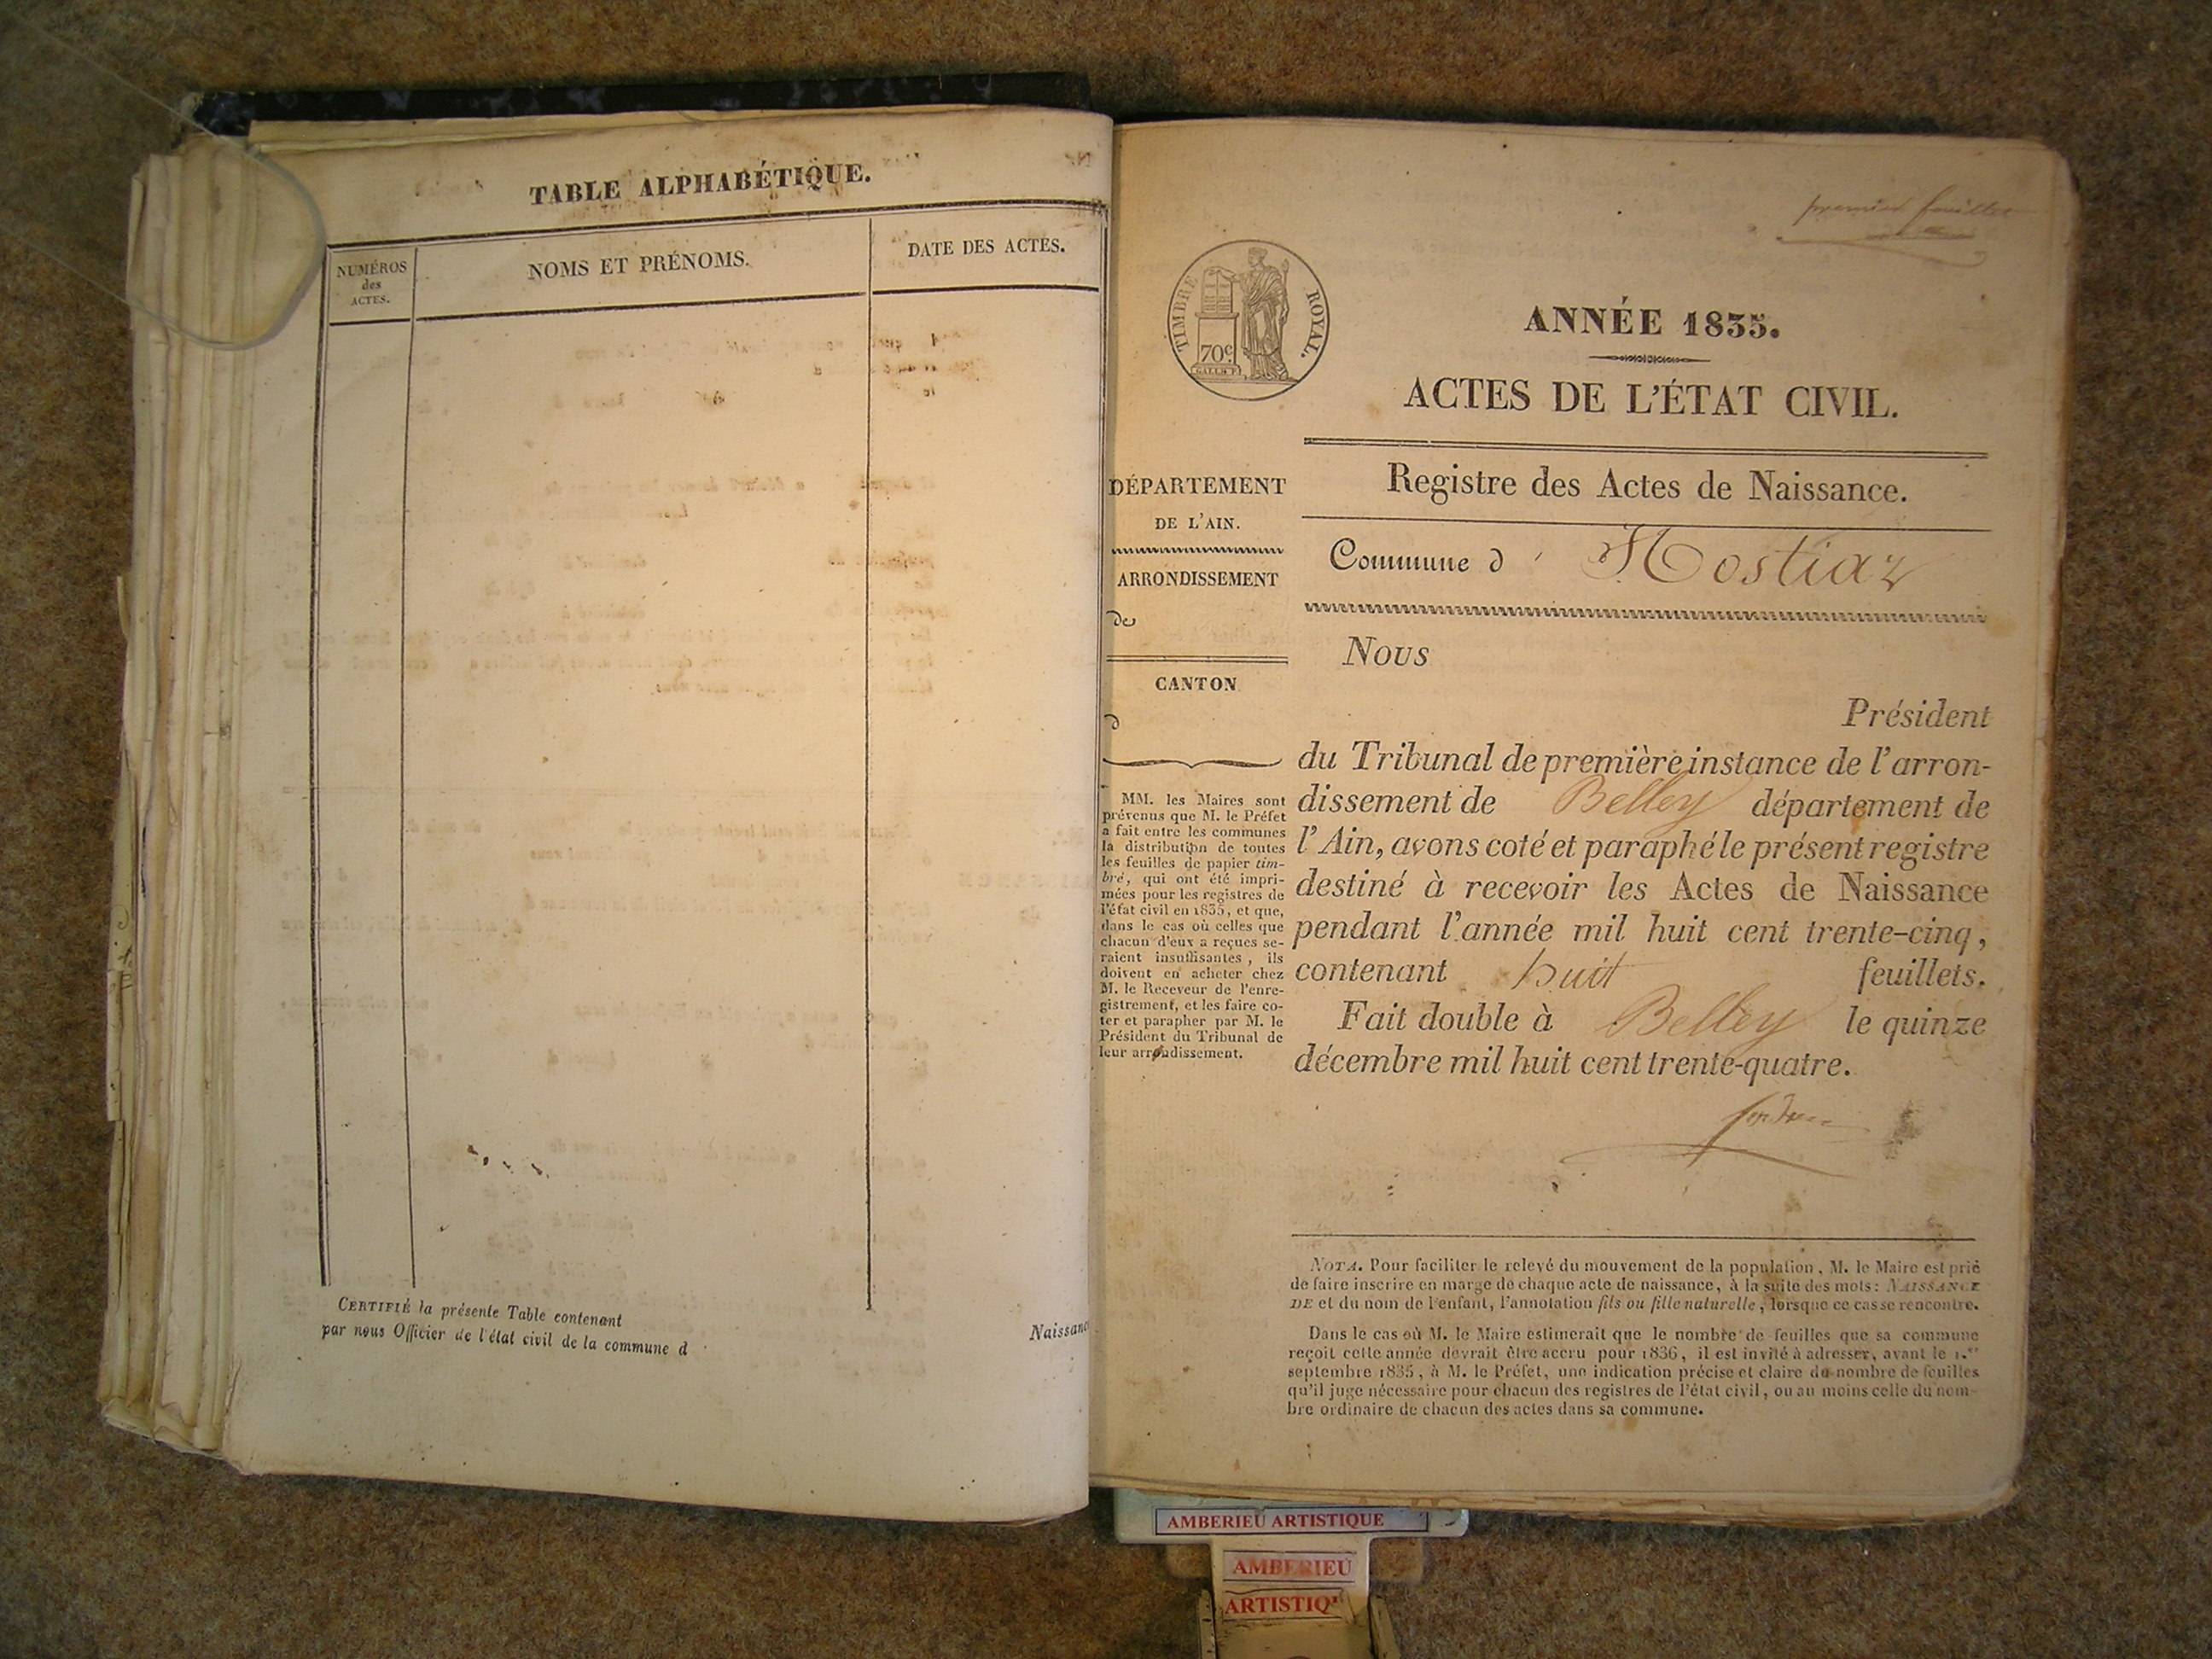 TABLE ALPHABÉTIQUE.
NUMÉROS
des
ACTES.
NOMS ET PRÉNOMS.
DATE DES ACTES.
CERTIFIÉ la présente Table contenant
par nous Officier de l'état civil de la commune d
Naissanc
premier feuillet
TIMBRE ROYAL.
70c
ANNÉE 1835.
ACTES DE L'ÉTAT CIVIL.
DÉPARTEMENT
DE L'AIN.
ARRONDISSEMENT
de
CANTON
d
MM. les Maires sont
prévenus que M. le Préfet
a fait entre les communes
la distribution de toutes
les feuilles de papier tim-
bré, qui ont été impri-
mées pour les registres de
l'état civil en 1835, et que,
dans le cas où celles que
chacun d'eux a reçues se-
raient insuffisantes, ils
doivent en acheter chez
M. le Receveur de l'enre-
gistrement, et les faire co-
ter et parapher par M. le
Président du Tribunal de
leur arrondissement.
Registre des Actes de Naissance.
Commune d' Hostiaz
Nous
Président
du Tribunal de première instance de l'arron-
dissement de Belley département de
l'Ain, avons coté et paraphé le présent registre
destiné à recevoir les Actes de Naissance
pendant l'année mil huit cent trente-cinq,
contenant huit feuillets.
Fait double à Belley le quinze
décembre mil huit cent trente-quatre.
NOTA. Pour faciliter le relevé du mouvement de la population, M. le Maire est prié
de faire inscrire en marge de chaque acte de naissance, à la suite des mots: NAISSANCE
DE et du nom de l'enfant, l'annotation fils ou fille naturelle, lorsque ce cas se rencontre.
Dans le cas où M. le Maire estimerait que le nombre de feuilles que sa commune
reçoit cette année devrait être accru pour 1836, il est invité à adresser, avant le 1.er
septembre 1835, à M. le Préfet, une indication précise et claire du nombre de feuilles
qu'il juge nécessaire pour chacun des registres de l'état civil, ou au moins celle du nom-
bre ordinaire de chacun des actes dans sa commune.
AMBERIEU ARTISTIQUE
AMBERIEU
ARTISTIQ